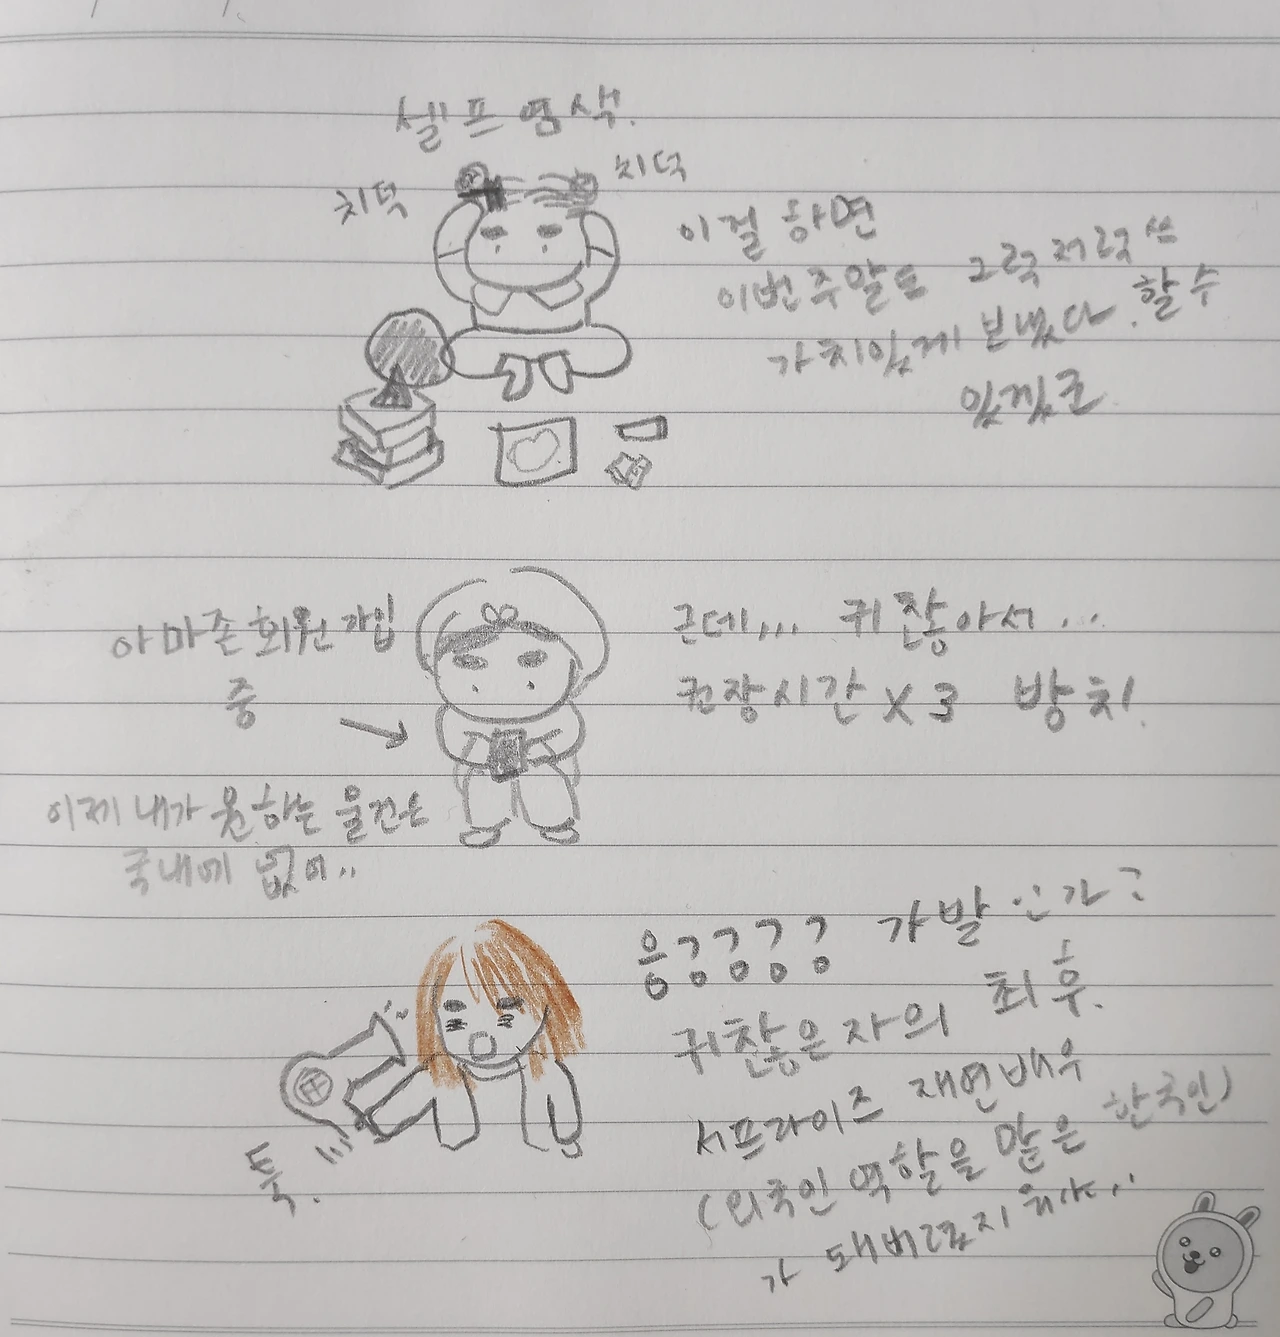 셀프 염색.
치덕
치덕
이걸 하면
이번주말도 그럭저럭 쓰
가치있게 보냈다. 할 수
있겠군
아마존 회원 가입
중
근데,,, 귀찮아서...
권장시간 x 3 방치.
이제 내가 원하는 물건은
국내에 없어..
가발인가?
귀찮은 자의 최후.
서프라이즈 재연배우
(외국인 역할을 맡은 한국인)
가 돼버렸지뭐야..
툭.